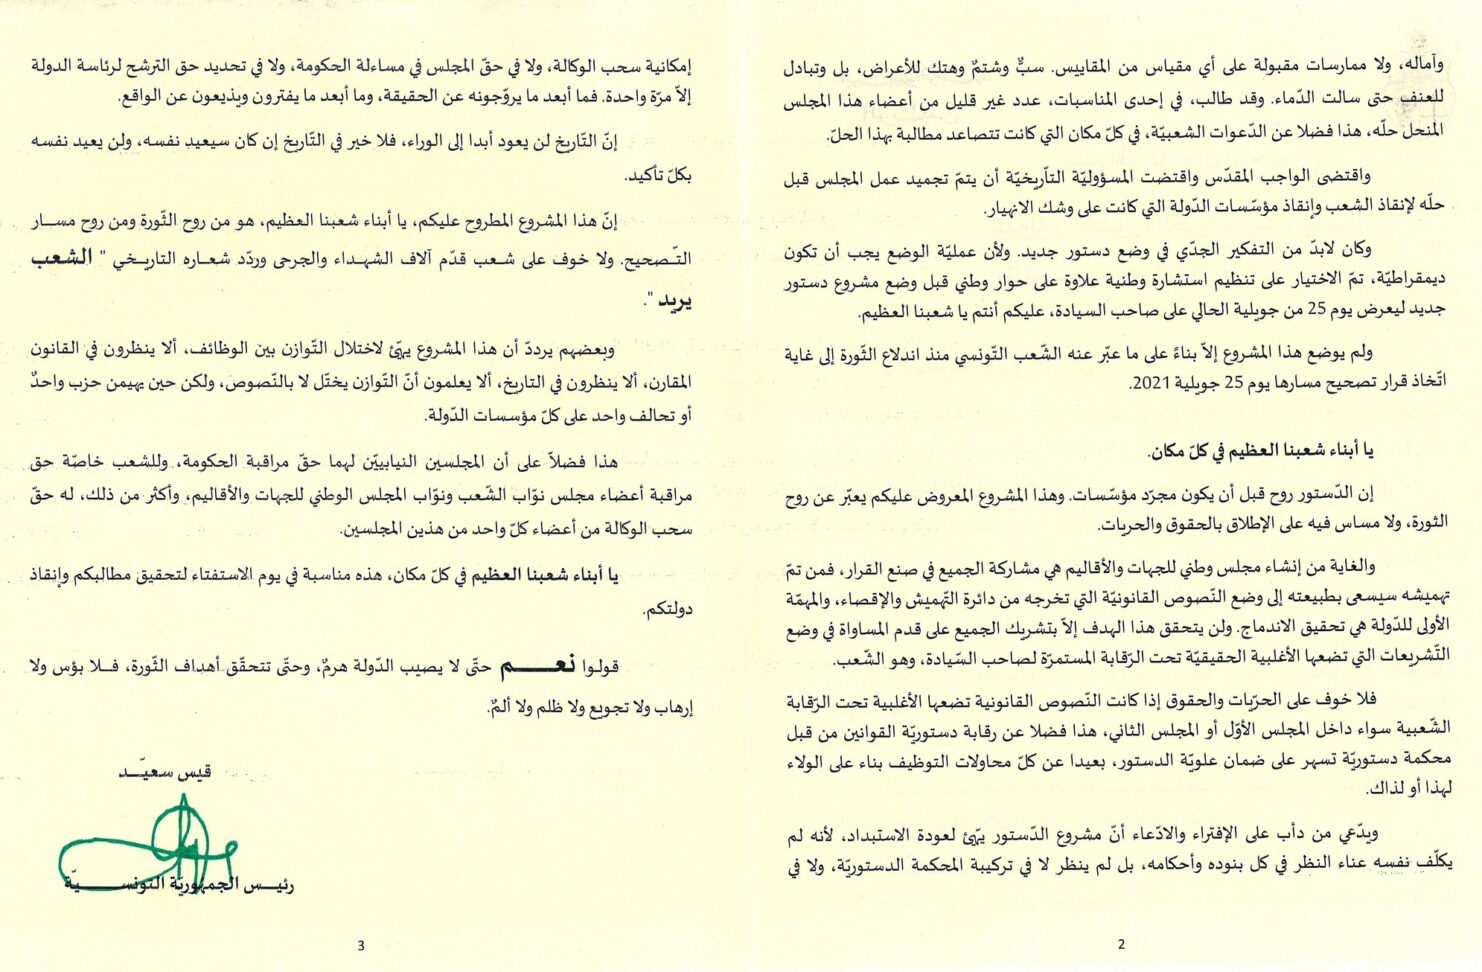 وآماله، ولا ممارسات مقبولة على أي مقياس من المقاييس. سبٌّ وشتمٌ وهتك للأعراض، بل وتبادل
للعنف حتى سالت الدّماء. وقد طالب، في إحدى المناسبات، عدد غير قليل من أعضاء هذا المجلس
المنحل حلّه، هذا فضلا عن الدّعوات الشعبيّة، في كلّ مكان التي كانت تتصاعد مطالبة بهذا الحلّ.
واقتضى الواجب المقدّس واقتضت المسؤوليّة التاّريخيّة أن يتمّ تجميد عمل المجلس قبل
حلّه لإنقاذ الشعب وإنقاذ مؤسّسات الدّولة التي كانت على وشك الانهيار.
وكان لابدّ من التفكير الجدّي في وضع دستور جديد. ولأن عمليّة الوضع يجب أن تكون
ديمقراطيّة، تمّ الاختيار على تنظيم استشارة وطنية علاوة على حوار وطني قبل وضع مشروع دستور
جديد ليعرض يوم 25 من جويلية الحالي على صاحب السيادة، عليكم أنتم يا شعبنا العظيم.
ولم يوضع هذا المشروع إلاّ بناءً على ما عبّر عنه الشّعب التّونسي منذ اندلاع الثّورة إلى غاية
اتّخاذ قرار تصحيح مسارها يوم 25 جويلية 2021.
يا أبناء شعبنا العظيم في كلّ مكان.
إن الدّستور روح قبل أن يكون مجرّد مؤسّسات. وهذا المشروع المعروض عليكم يعبّر عن روح
الثورة، ولا مساس فيه على الإطلاق بالحقوق والحريات.
والغاية من إنشاء مجلس وطني للجهات والأقاليم هي مشاركة الجميع في صنع القرار، فمن تمّ
تهميشه سيسعى بطبيعته إلى وضع النّصوص القانونيّة التي تخرجه من دائرة التّهميش والإقصاء، والمهمّة
الأولى للدّولة هي تحقيق الاندماج. ولن يتحقق هذا الهدف إلاّ بتشريك الجميع على قدم المساواة في وضع
التّشريعات التي تضعها الأغلبية الحقيقيّة تحت الرّقابة المستمرّة لصاحب السّيادة، وهو الشّعب.
فلا خوف على الحرّيات والحقوق إذا كانت النّصوص القانونية تضعها الأغلبية تحت الرّقابة
الشّعبية سواء داخل المجلس الأوّل أو المجلس الثاني، هذا فضلا عن رقابة دستوريّة القوانين من قبل
محكمة دستوريّة تسهر على ضمان علويّة الدستور، بعيدا عن كلّ محاولات التوظيف بناء على الولاء
لهذا أو لذاك.
ويدّعي من دأب على الإفتراء والادّعاء أنّ مشروع الدّستور يهّئ لعودة الاستبداد، لأنه لم
يكلّف نفسه عناء النظر في كل بنوده وأحكامه، بل لم ينظر لا في تركيبة المحكمة الدستوريّة، ولا في
2
إمكانية سحب الوكالة، ولا في حقّ المجلس في مساءلة الحكومة، ولا في تحديد حق الترشح لرئاسة الدولة
إلاّ مرّة واحدة. فما أبعد ما يروّجونه عن الحقيقة، وما أبعد ما يفترون ويذيعون عن الواقع.
إنّ التّاريخ لن يعود أبدا إلى الوراء، فلا خير في التّاريخ إن كان سيعيد نفسه، ولن يعيد نفسه
بكلّ تأكيد.
إنّ هذا المشروع المطروح عليكم، يا أبناء شعبنا العظيم، هو من روح الثّورة ومن روح مسـار
التّـصحيح. ولا خوف على شـعب قدّم آلاف الشهـداء والجرحى وردّد شعـاره التاريـخي " الشعب
يريد ".
وبعضهم يرددّ أن هذا المشروع يهّئ لاختلال التّوازن بين الوظائف، ألا ينظرون في القانون
المقارن، ألا ينظرون في التاريخ، ألا يعلمون أنّ التّوازن يختّل لا بالنّصوص، ولكن حين يهيمن حزب واحدٌ
أو تحالف واحد على كلّ مؤسسات الدّولة.
هذا فضلاّ على أن المجلسين النيابييّن لهما حقّ مراقبة الحكومة، وللشعب خاصّة حق
مراقبة أعضاء مجلس نوّاب الشّعب ونوّاب المجلس الوطني للجهات والأقاليم، وأكثر من ذلك، له حقّ
سحب الوكالة من أعضاء كلّ واحد من هذين المجلسين.
يا أبناء شعبنا العظيم في كلّ مكان، هذه مناسبة في يوم الاستفتاء لتحقيق مطالبكم وإنقاذ
دولتكم.
قولـوا نعـــم حتّى لا يصيب الدّولة هرمٌ، وحتّى تتحقّق أهداف الثّورة، فـلا بؤس ولا
إرهاب ولا تجويع ولا ظلم ولا ألمٌ.
قيس سعيّـد
رئيـس الجمهوريّة التونســـيّة
3